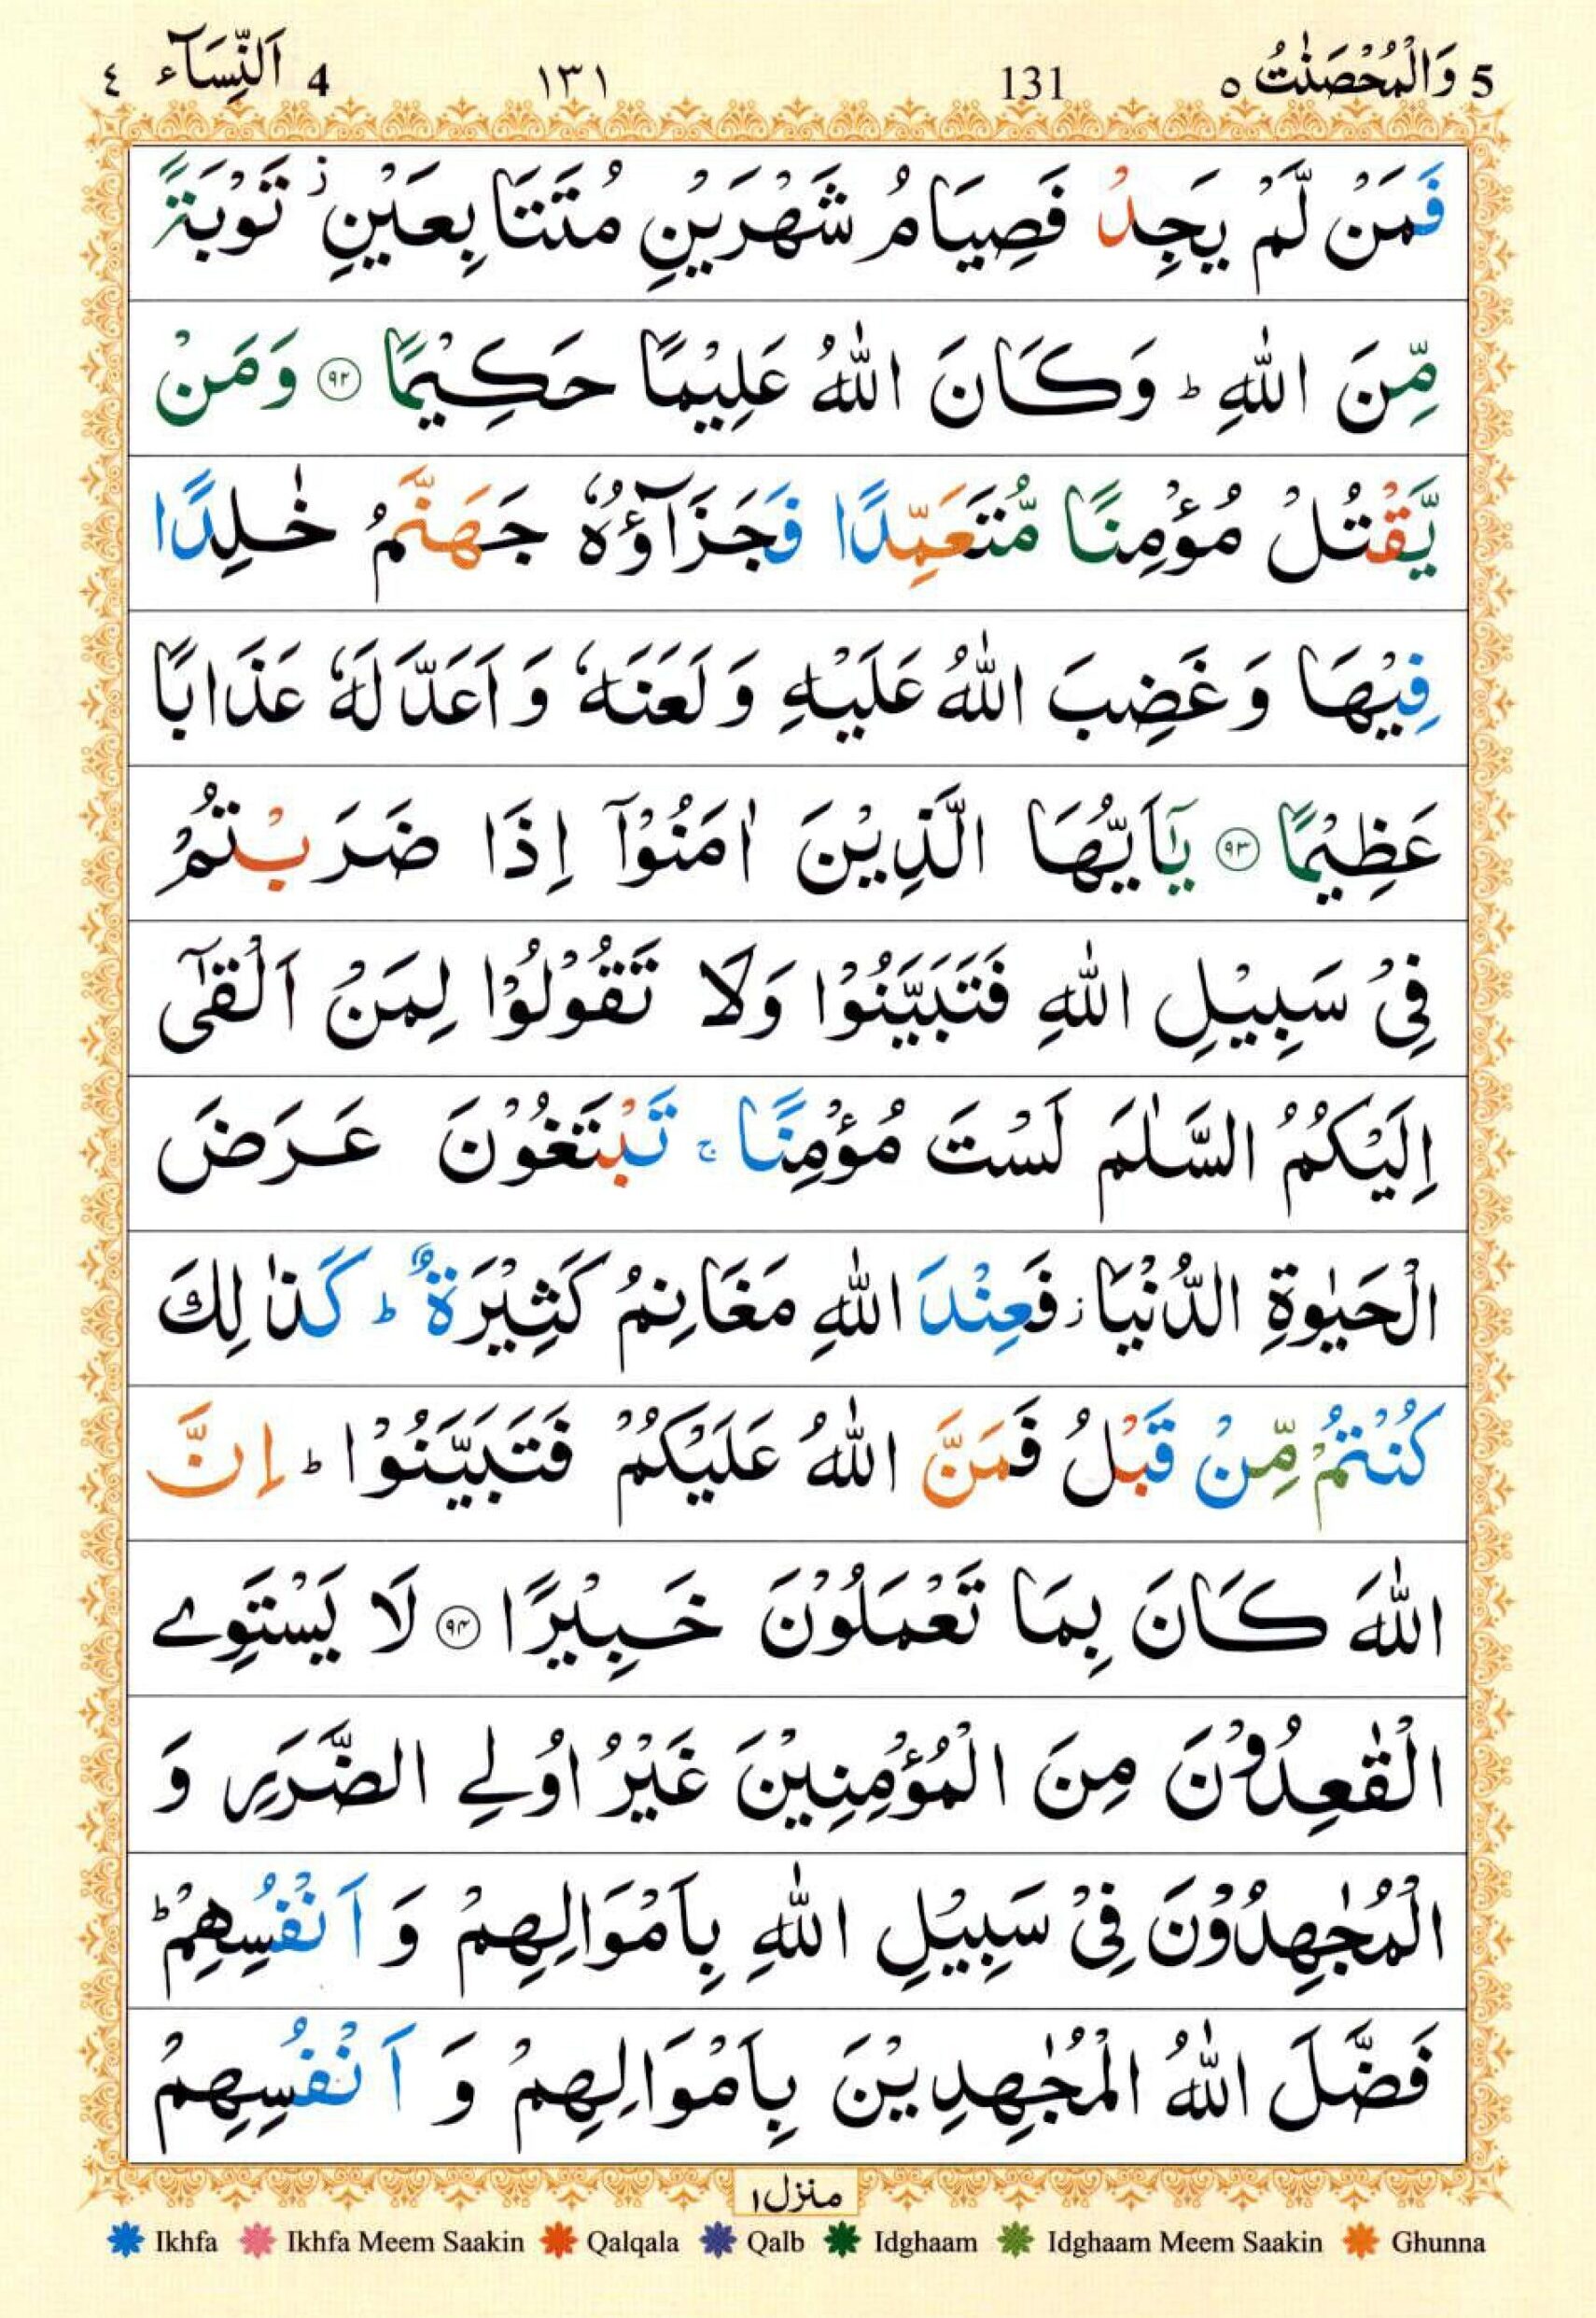 5 وَالْمُحْصَنٰتُ ٥ 131 ١٣١ 4 اَلنِّسَآء ٤
فَمَنْ لَّمْ يَجِدْ فَصِيَامُ شَهْرَيْنِ مُتَتَابِعَيْنِ ز تَوْبَةً
مِّنَ اللّٰهِ ؕ وَكَانَ اللّٰهُ عَلِيْمًا حَكِيْمًا ۹۲ وَمَنْ
يَّقْتُلْ مُؤْمِنًا مُّتَعَمِّدًا فَجَزَآؤُهٗ جَهَنَّمُ خٰلِدًا
فِيْهَا وَغَضِبَ اللّٰهُ عَلَيْهِ وَلَعَنَهٗ وَاَعَدَّ لَهٗ عَذَابًا
عَظِيْمًا ۹۳ يٰۤاَيُّهَا الَّذِيْنَ اٰمَنُوْۤا اِذَا ضَرَبْتُمْ
فِيْ سَبِيْلِ اللّٰهِ فَتَبَيَّنُوْا وَلَا تَقُوْلُوْا لِمَنْ اَلْقٰۤى
اِلَيْكُمُ السَّلٰمَ لَسْتَ مُؤْمِنًا ۚ تَبْتَغُوْنَ عَرَضَ
الْحَيٰوةِ الدُّنْيَا ز فَعِنْدَ اللّٰهِ مَغَانِمُ كَثِيْرَةٌ ؕ كَذٰلِكَ
كُنْتُمْ مِّنْ قَبْلُ فَمَنَّ اللّٰهُ عَلَيْكُمْ فَتَبَيَّنُوْا ؕ اِنَّ
اللّٰهَ كَانَ بِمَا تَعْمَلُوْنَ خَبِيْرًا ۹۴ لَا يَسْتَوِے
الْقٰعِدُوْنَ مِنَ الْمُؤْمِنِيْنَ غَيْرُ اُولِے الضَّرَرِ وَ
الْمُجٰهِدُوْنَ فِيْ سَبِيْلِ اللّٰهِ بِاَمْوَالِهِمْ وَ اَنْفُسِهِمْ ؕ
فَضَّلَ اللّٰهُ الْمُجٰهِدِيْنَ بِاَمْوَالِهِمْ وَ اَنْفُسِهِمْ
منزل ١
Ikhfa Ikhfa Meem Saakin Qalqala Qalb Idghaam Idghaam Meem Saakin Ghunna